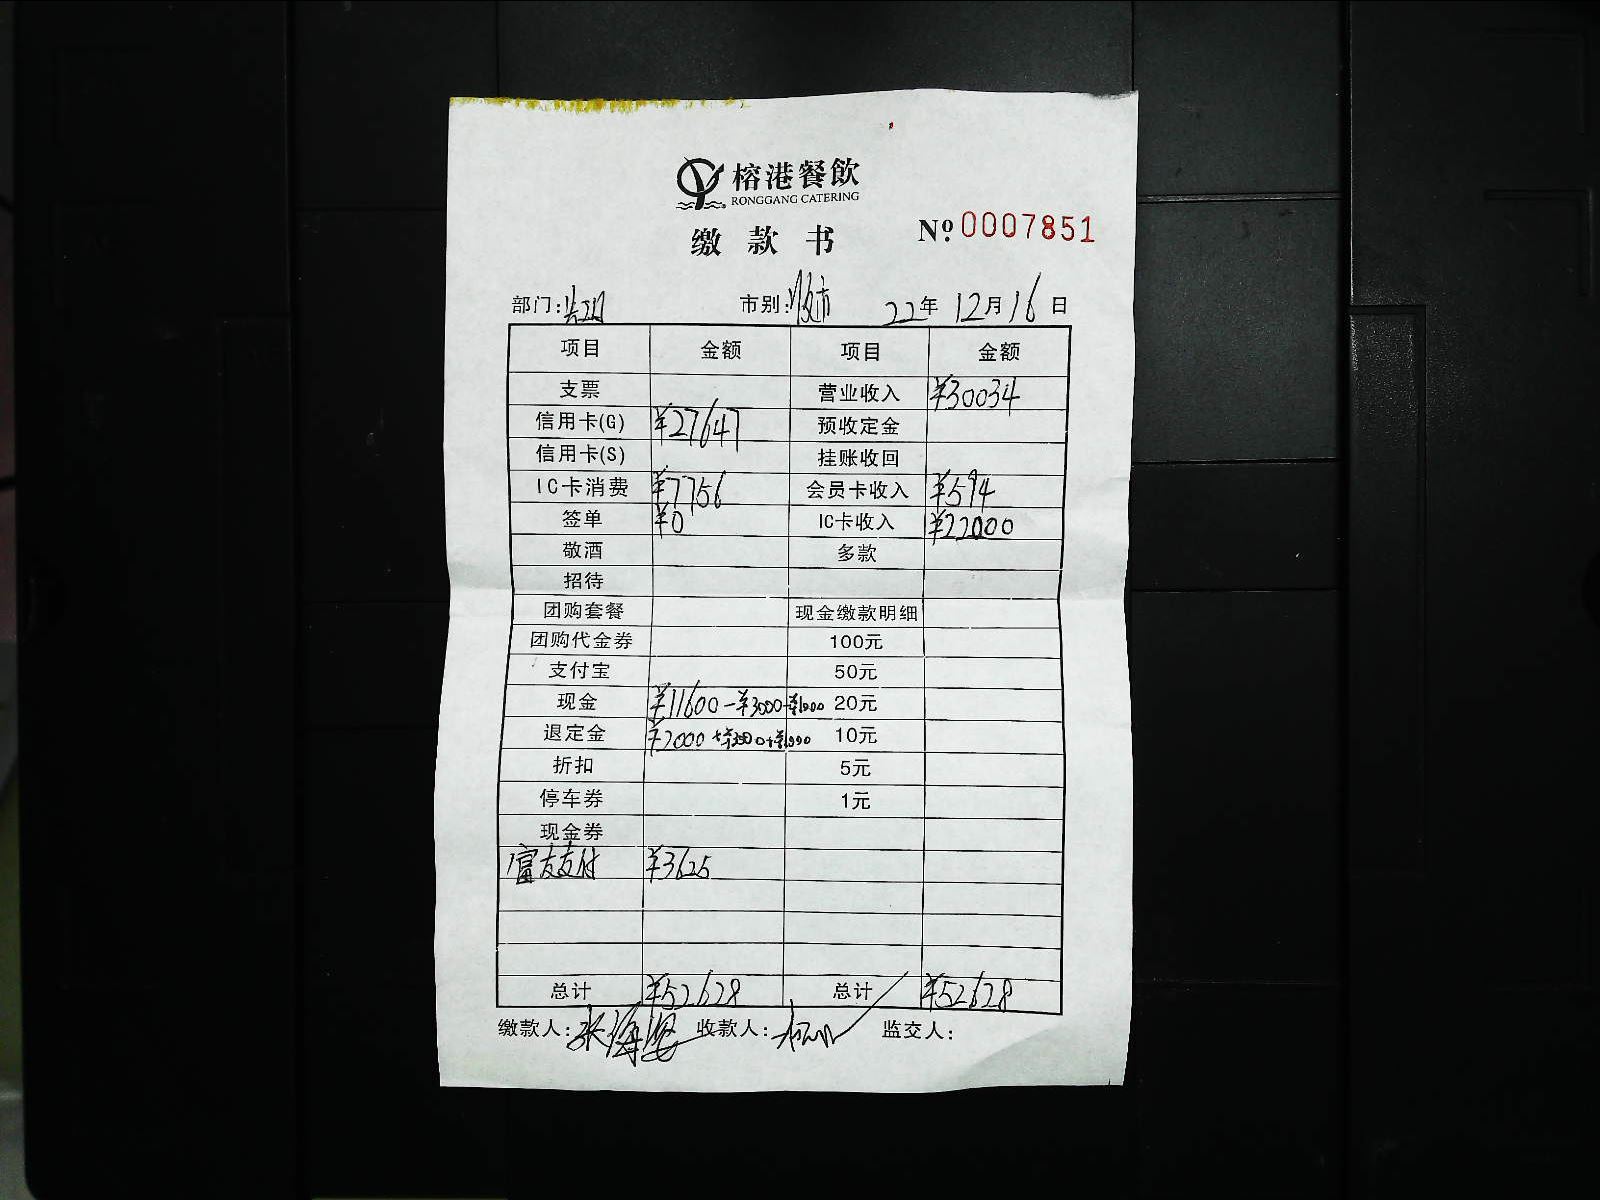 榕港餐飲
RONGGANG CATERING
缴款书 Nº 0007851
部门: 市别: 晚市 22年12月16日
项目 金额 项目 金额
支票 营业收入 ¥30034
信用卡(G) ¥27647 预收定金
信用卡(S) 挂账收回
IC卡消费 ¥7756 会员卡收入 ¥594
签单 ¥0 IC卡收入 ¥22000
敬酒 多款
招待
团购套餐 现金缴款明细
团购代金券 100元
支付宝 50元
现金 ¥11600-¥3000-¥1000 20元
退定金 ¥2000+¥3000+¥1000 10元
折扣 5元
停车券 1元
现金券
富友支付 ¥3625
总计 ¥52628 总计 ¥52628
缴款人: 张海 收款人: 监交人: